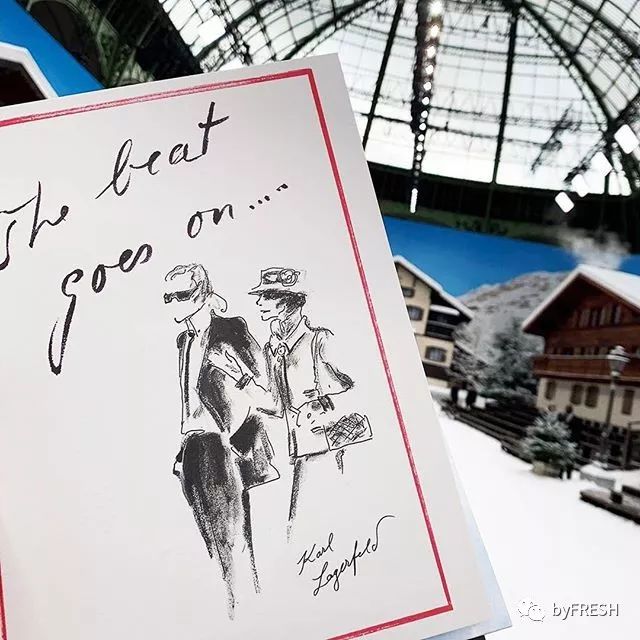 The beat
goes on....
Karl
Lagerfeld
byFRESH